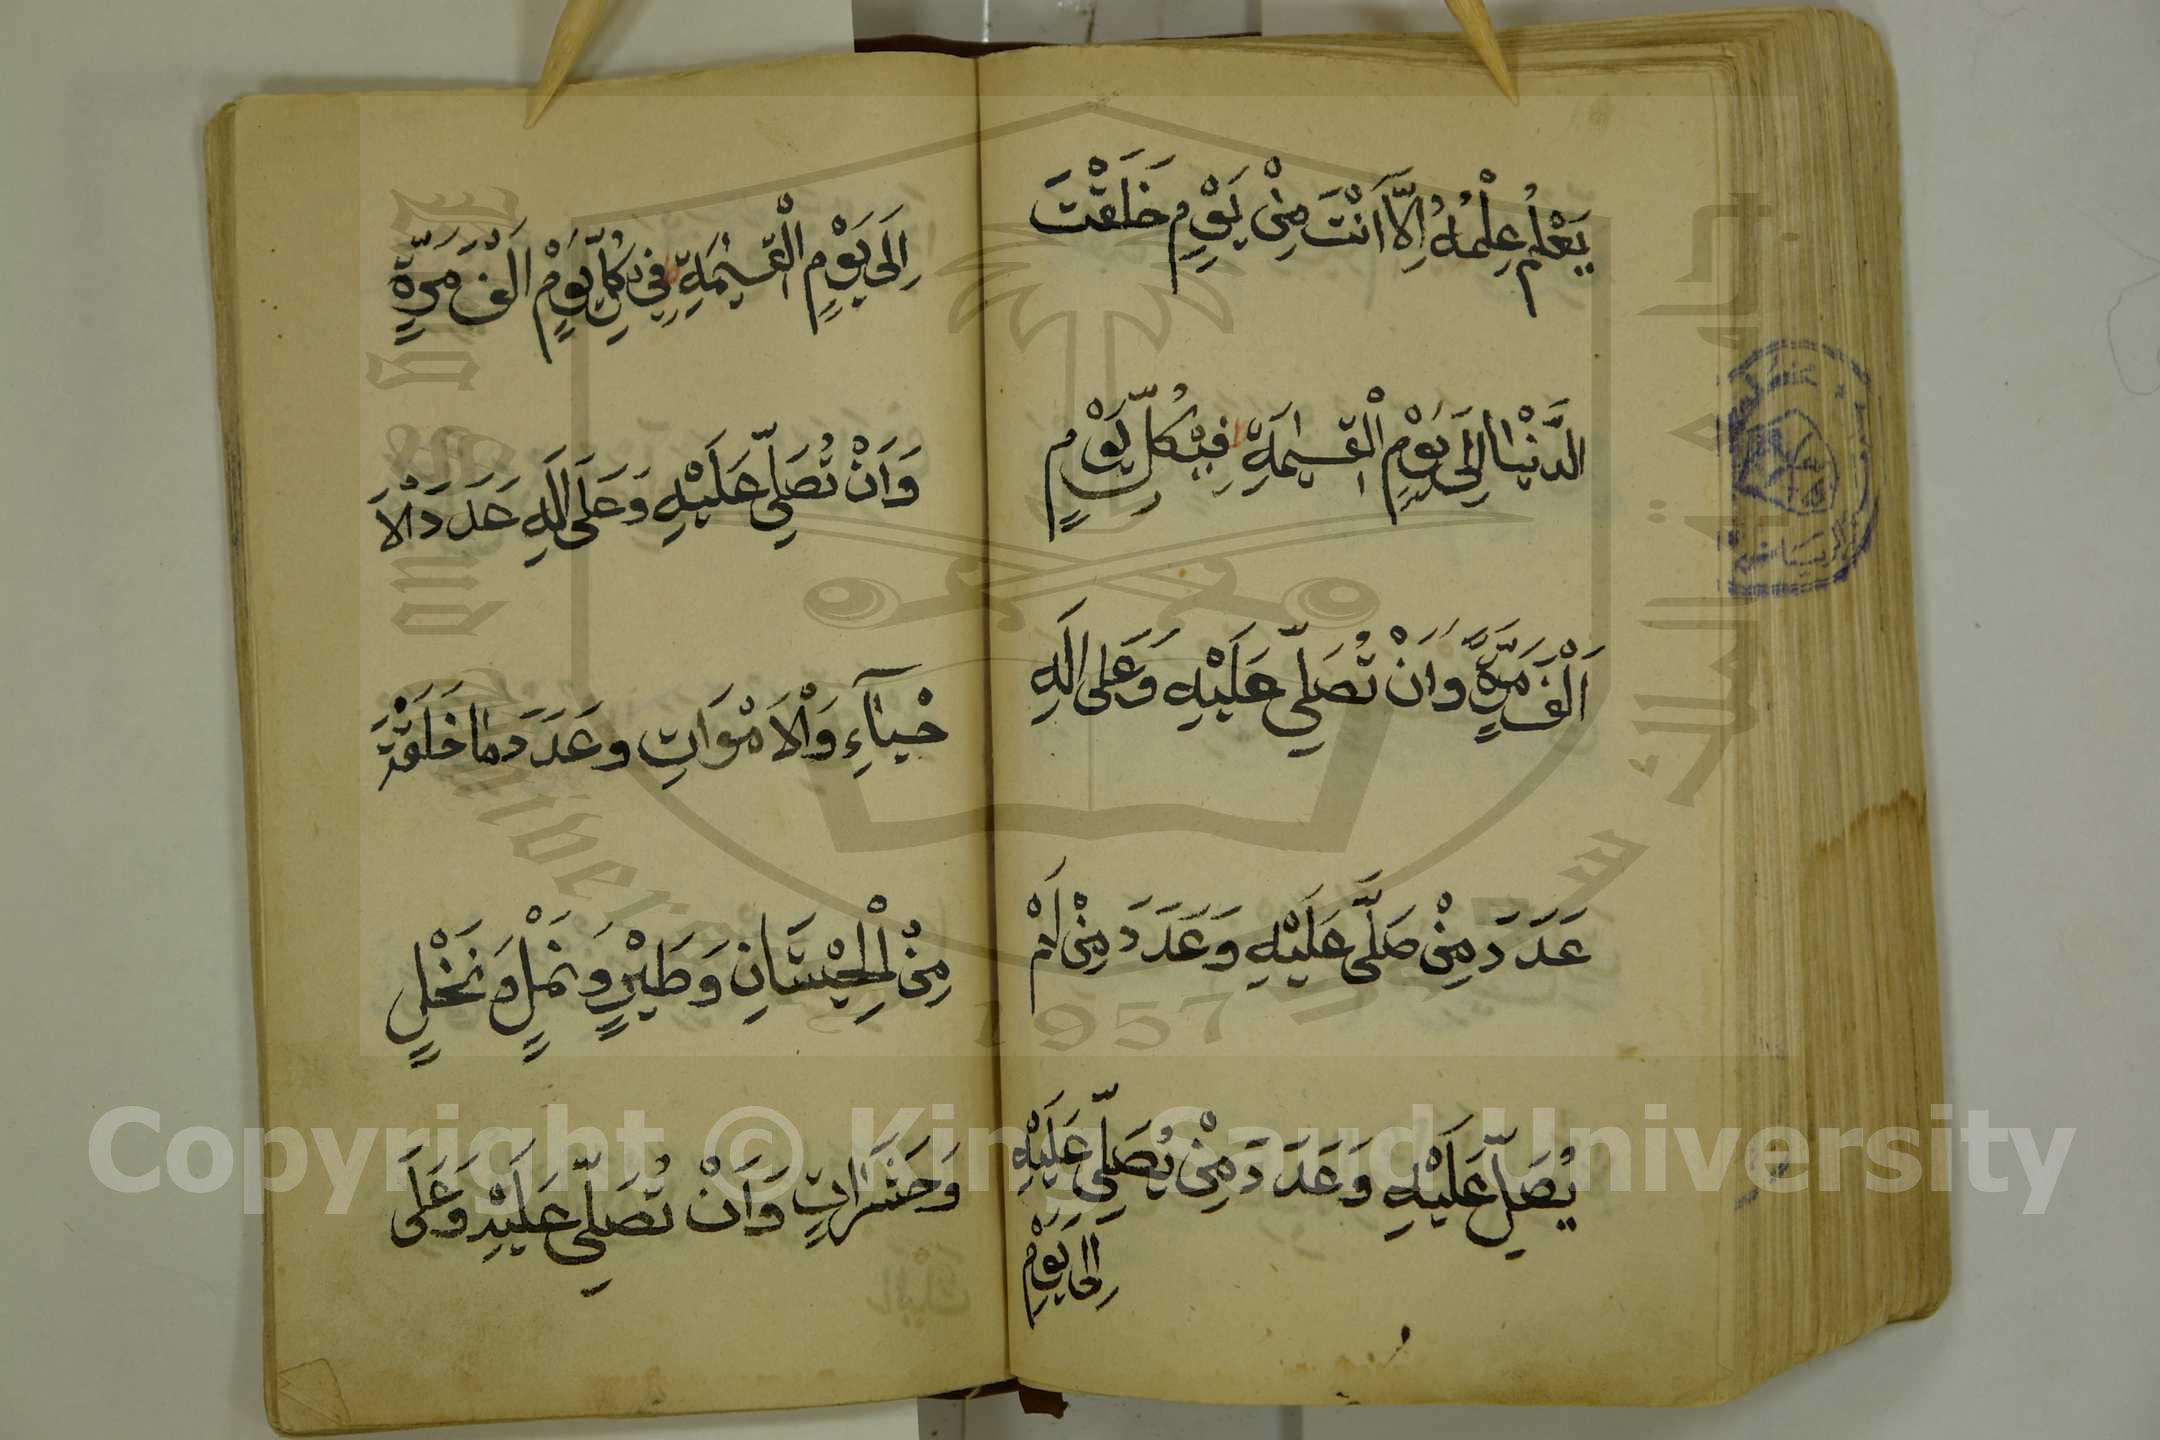 يَعْلَمُ عِلْمُهُ اِلَّا اَنْتَ مِنْ يَوْمٍ خَلَقْتَ
الدَّنْيَا اِلَى يَوْمِ الْقِيٰمَةِ فِيْ كُلِّ يَوْمٍ
اَلْفَ مَرَّةٍ وَاَنْ تُصَلِّي عَلَيْهِ وَعَلَى الِهِ
عَدَدَ مِنْ صَلَّى عَلَيْهِ وَعَدَدَ مِنْ لَمْ
يُصَلِّ عَلَيْهِ وَعَدَدَ مِنْ يُصَلِّي عَلَيْهِ
اِلَى يَوْمِ
اِلَى يَوْمِ الْقِيٰمَةِ فِي كُلِّ يَوْمٍ اَلْفَ مَرَّةٍ
وَاَنْ تُصَلِّي عَلَيْهِ وَعَلَى الِهِ عَدَدَ الْاَ
حْيَآءِ وَالْاَمْوَاتِ وَعَدَدَ مَا خَلَقْتَ
مِنْ الْحِيْتَانِ وَطَيْرٍ وَنَمْلٍ وَنَخْلٍ
وَحَشَرَاتٍ وَاَنْ تُصَلِّي عَلَيْهِ وَعَلَى
Copyright © King Saud University
1957